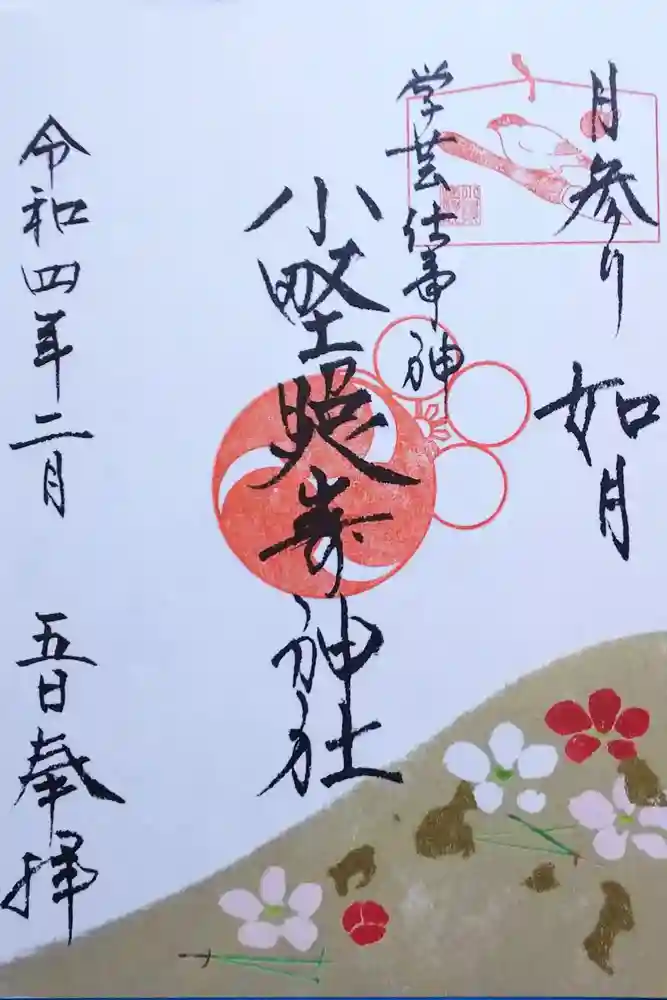 月参り 如月
学芸仕事神
小野照崎神社
令和四年二月 五日奉拝